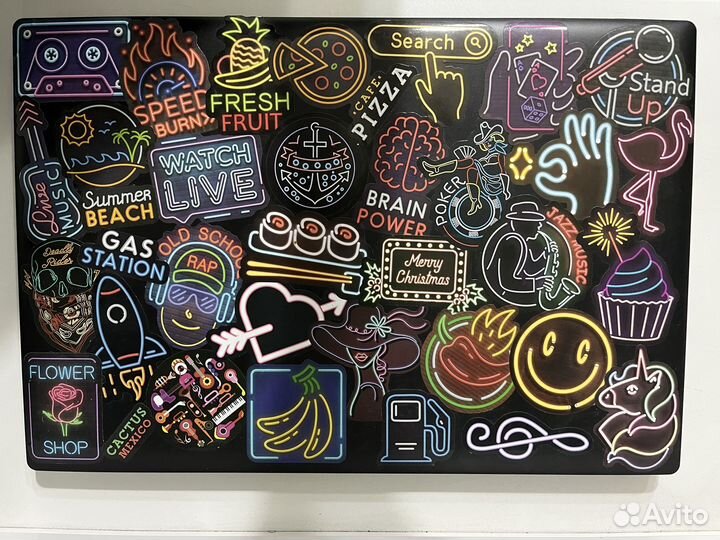 Search
SPEED
BURNX
FRESH
FRUIT
CAFE
PIZZA
A
Stand
Up
Live
MUSIC
Summer
BEACH
WATCH
LIVE
BRAIN
POWER
POKER
JAZZ MUSIC
Deadly
Rider
GAS
STATION
OLD SCHO
RAP
Merry
Christmas
FLOWER
SHOP
CACTUS
MEXICO
Avito